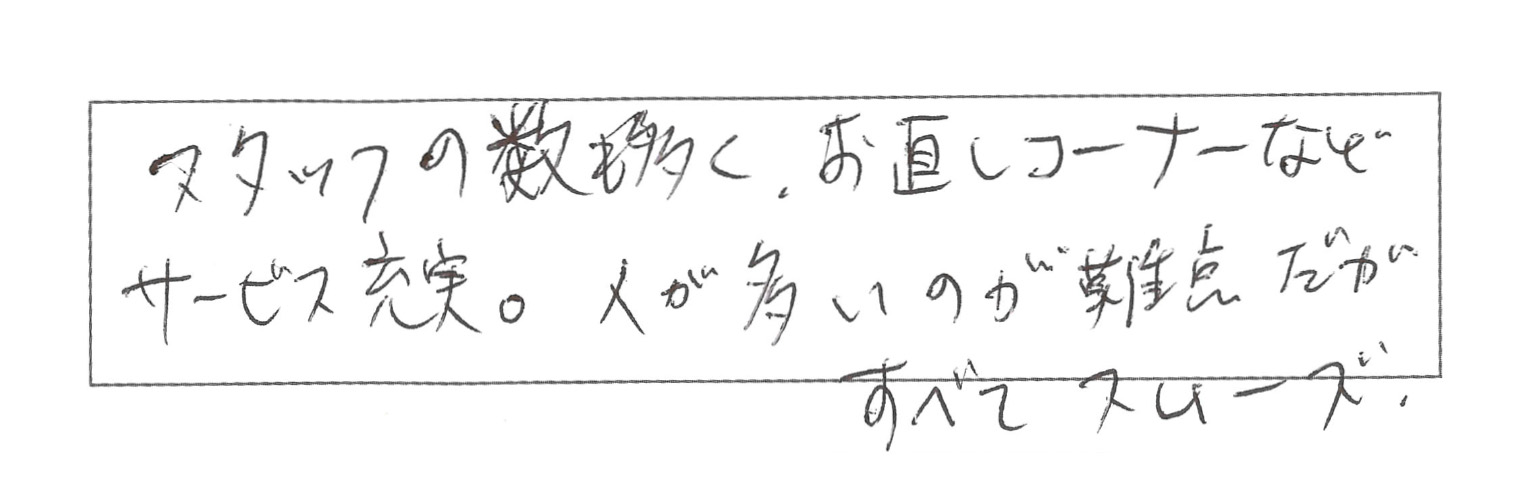 スタッフの数も多く、お直しコーナーなど
サービス充実。人が多いのが難点だが
すべてスムーズ.